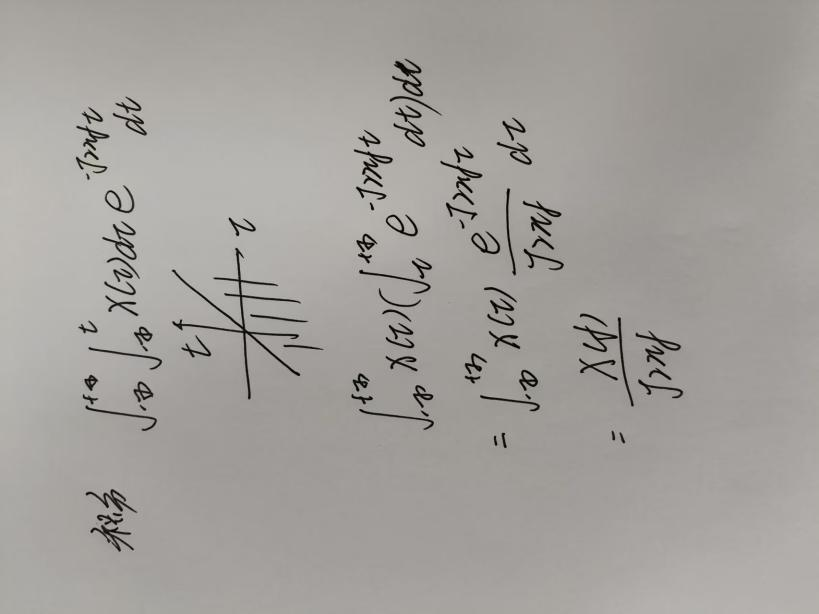 积分 ∫_{-∞}^{+∞} ∫_{-∞}^{t} x(τ)dτ e^{-j2πft} dt
t
τ
∫_{-∞}^{+∞} x(τ)(∫_{τ}^{+∞} e^{-j2πft} dt)dτ
= ∫_{-∞}^{+∞} x(τ) e^{-j2πfτ}/j2πf dτ
= X(f)/j2πf